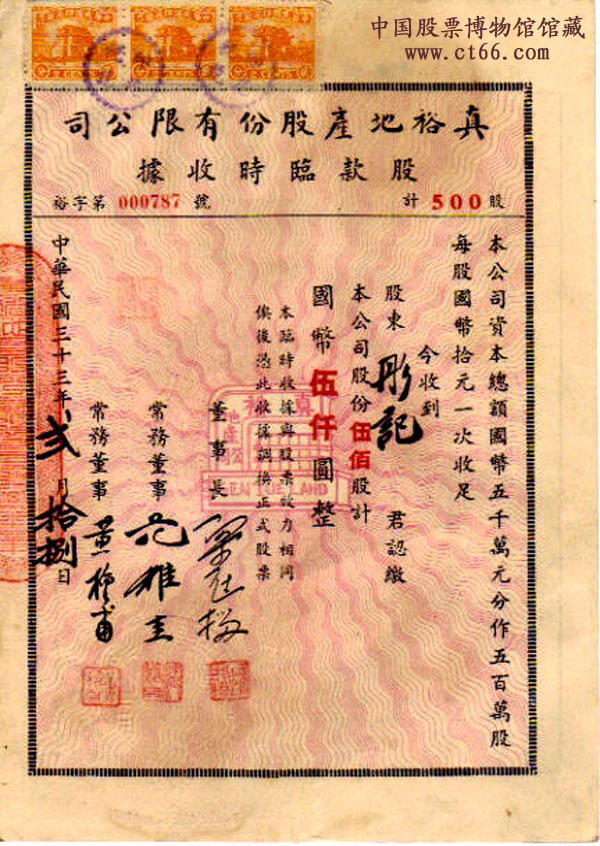 中国股票博物馆馆藏
www.ct66.com
真裕地產股份有限公司
股款臨時收據
計 500 股
裕字第 000787 號
本公司資本總額國幣五千萬元分作五百萬股
每股國幣拾元一次收足
今收到
股東 彤記 君認繳
本公司股份伍佰股計
國幣伍仟圓整
本臨時收據與股票效力相同
俟後憑此收據調換正式股票
董事長
常務董事
常務董事 黃
中華民國三十三年 貳 月 拾捌 日
真裕
地產公司